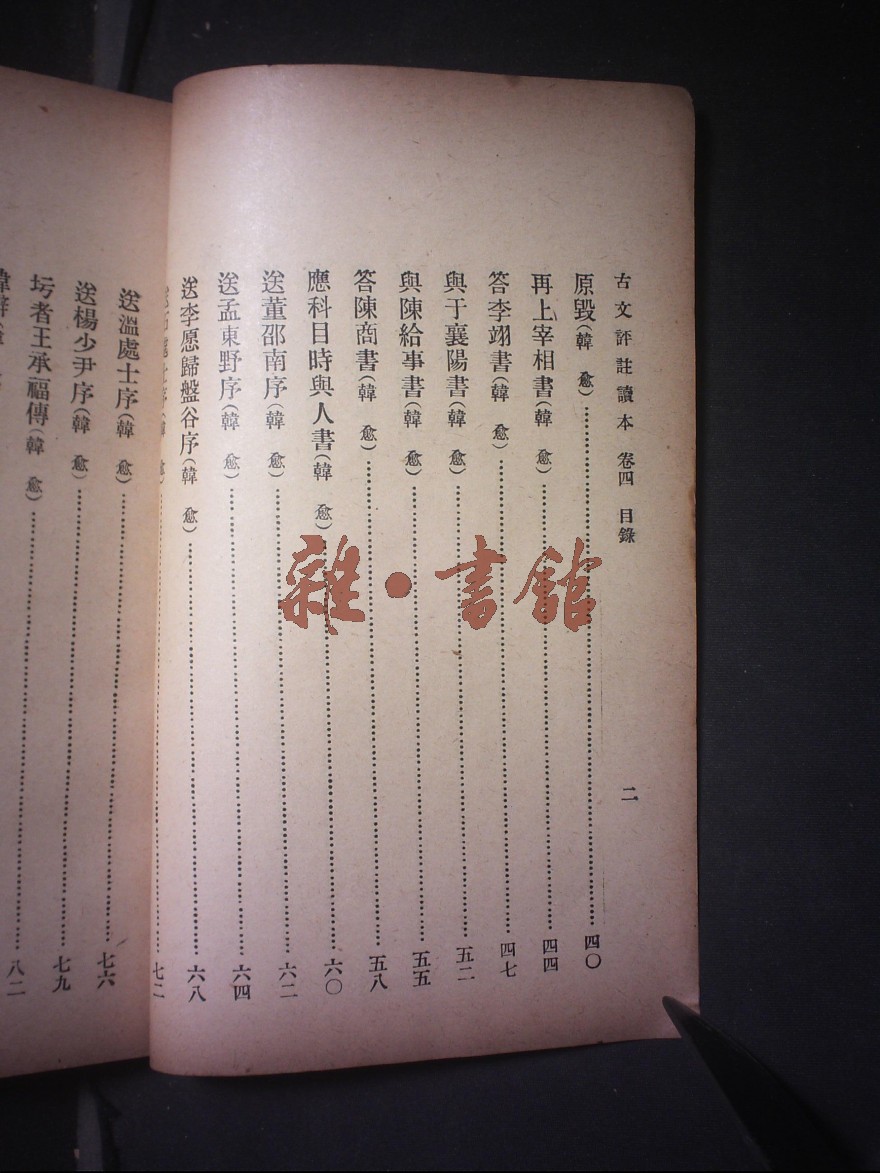 古文評註讀本 卷四 目錄 二
原毀(韓 愈)……四〇
再上宰相書(韓 愈)……四四
答李翊書(韓 愈)……四七
與于襄陽書(韓 愈)……五二
與陳給事書(韓 愈)……五五
答陳商書(韓 愈)……五八
應科目時與人書(韓 愈)……六〇
送董邵南序(韓 愈)……六二
送孟東野序(韓 愈)……六四
送李愿歸盤谷序(韓 愈)……六八
處士序(韓 愈)……七二
送溫處士序(韓 愈)……七六
送楊少尹序(韓 愈)……七九
圬者王承福傳(韓 愈)……八二
雜·書館